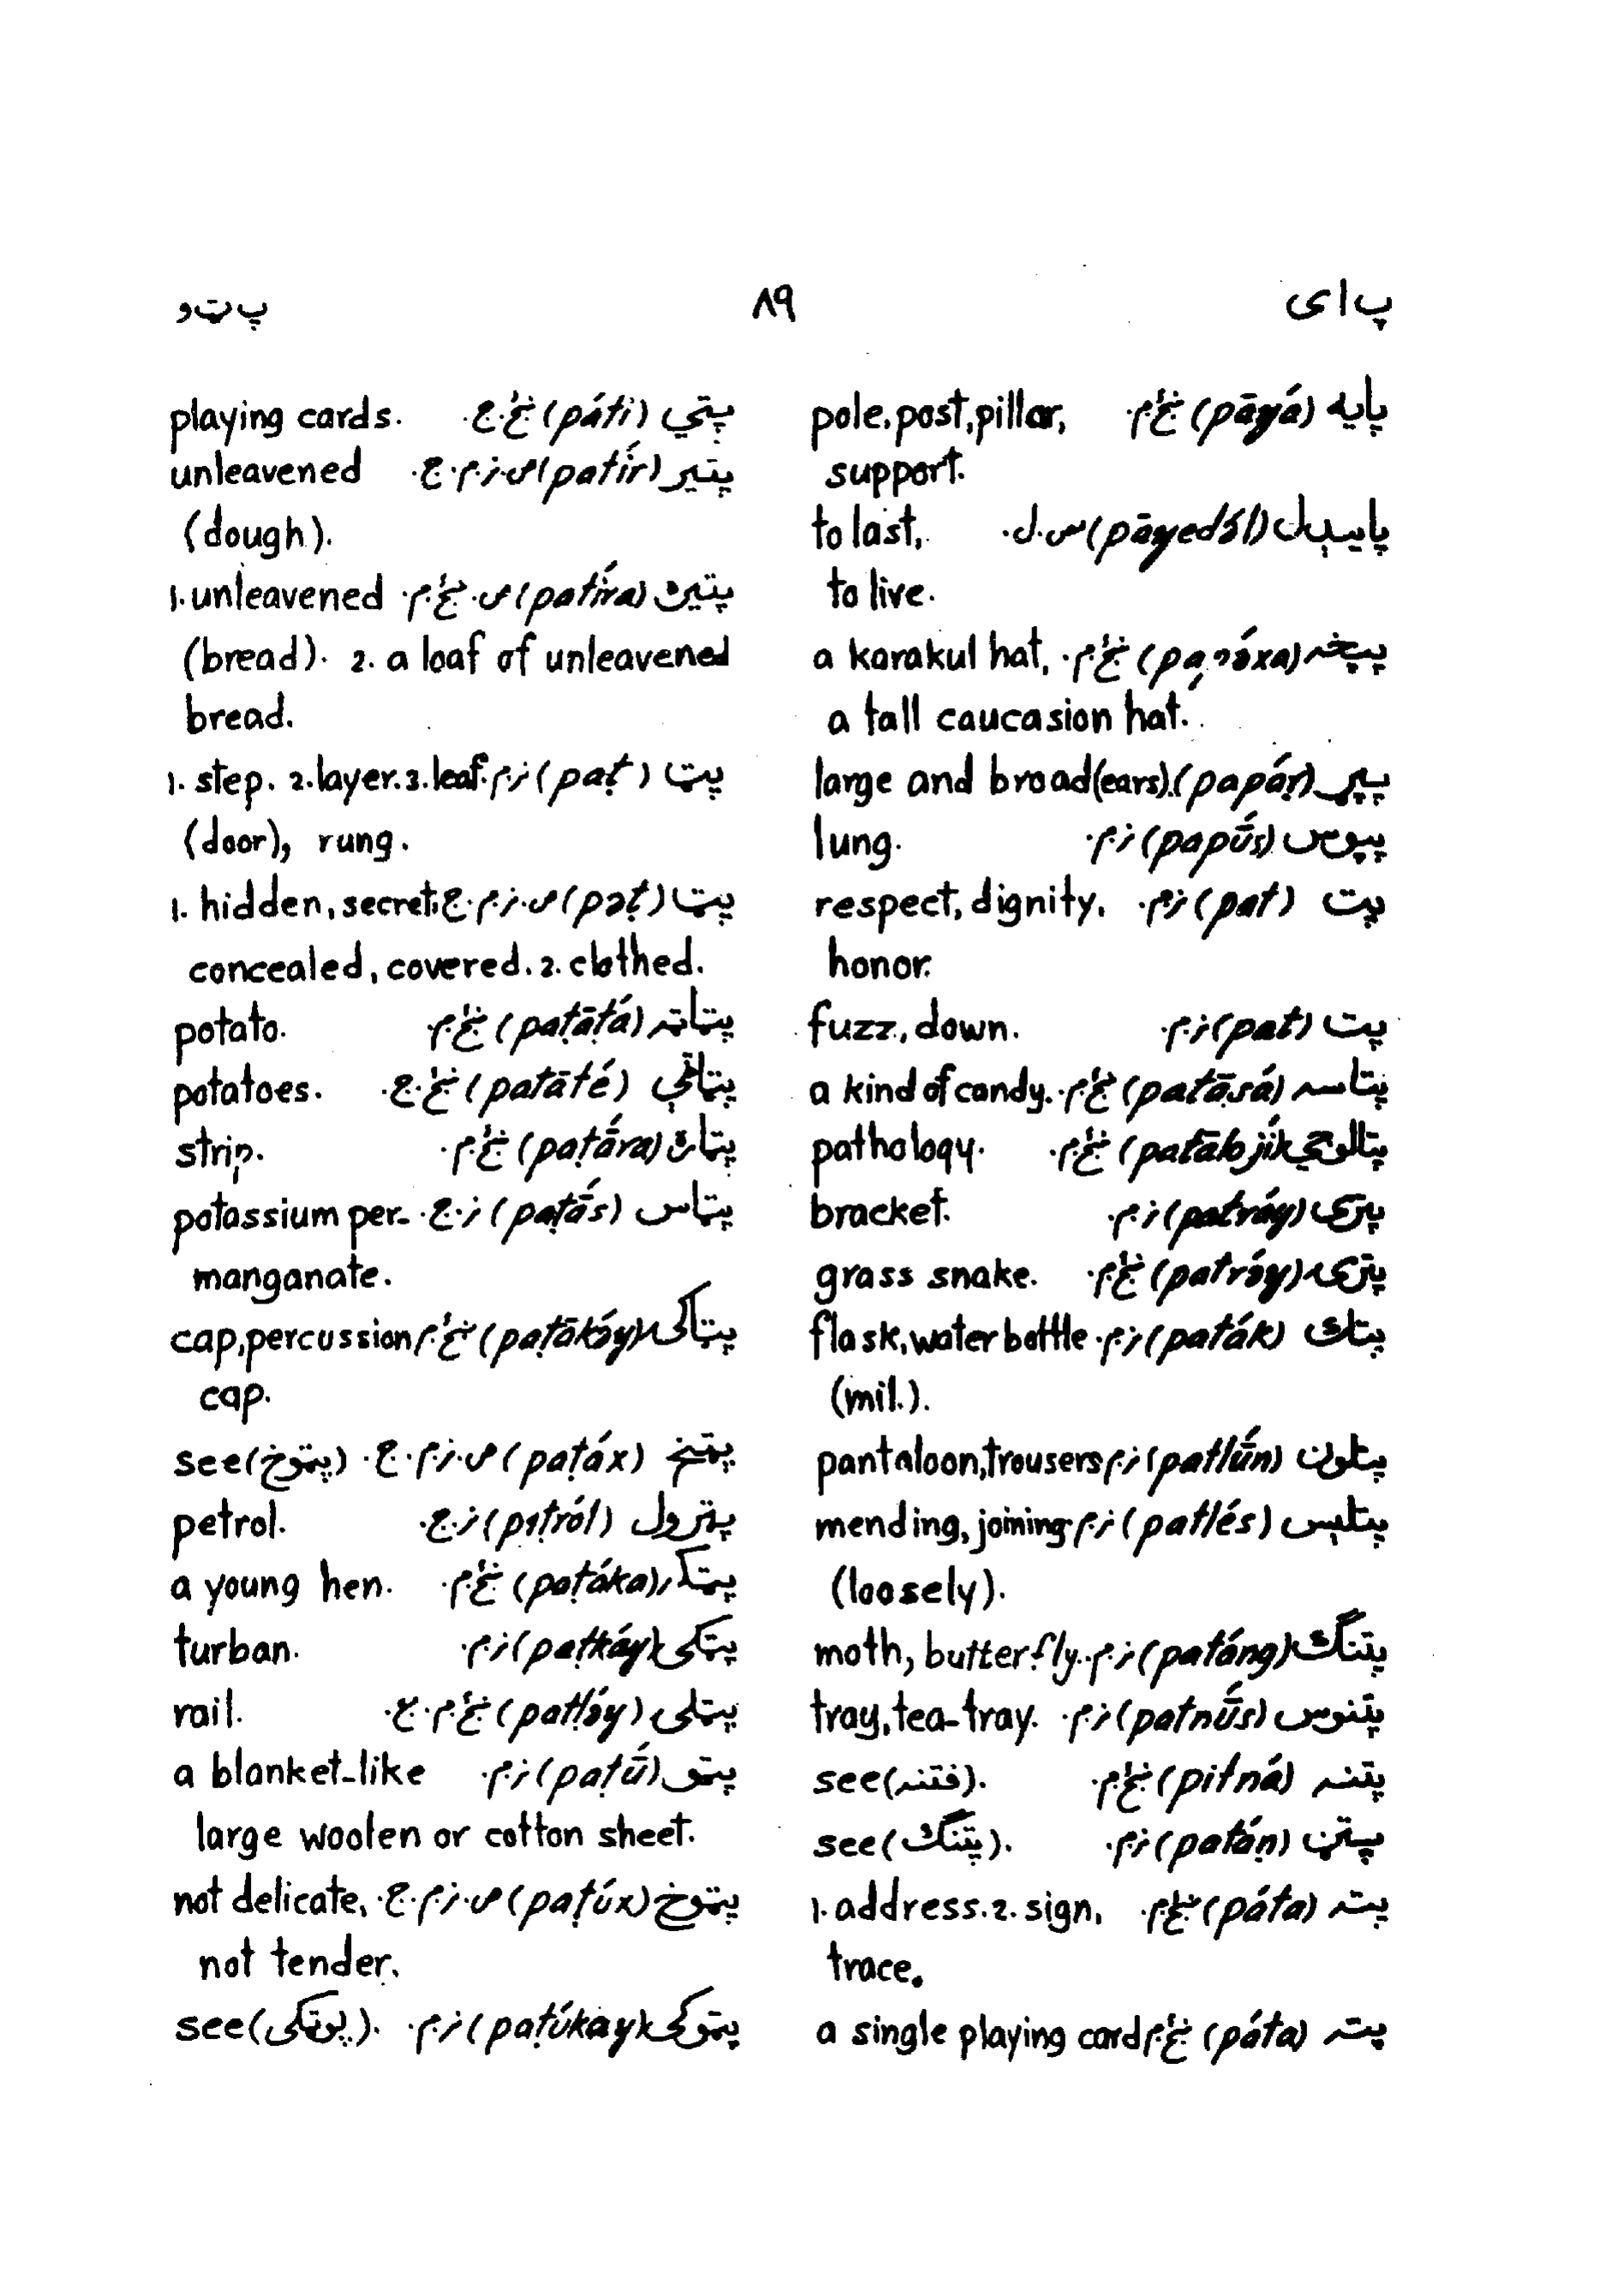 پ ا ی
۸۹
پ ټ و
پایه (pāyá) ښځ.م. pole, post, pillar,
support.
پاییدل (pāyedə́l) س.ل. to last,
to live.
ښځ.م. a karakul hat,
a tall caucasion hat.
پپړ (papáṛ) large and broad (ears).
پپوس (papū́s) نر.م. lung.
پت (pat) نر.م. respect, dignity,
honor.
پت (pat) نر.م. fuzz, down.
پتاسه (patāsá) ښځ.م. a kind of candy.
پتالوجي ښځ.م. pathology.
پتری (patráy) نر.م. bracket.
پترۍ (patrə́y) ښځ.م. grass snake.
پتک (paták) نر.م. flask, water bottle
(mil.).
پتلون (patlū́n) نر.م. pantaloon, trousers
پتلېس (patlés) نر.م. mending, joining
(loosely).
پتنگ (patáng) نر.م. moth, butterfly.
پتنوس (patnū́s) نر.م. tray, tea-tray.
پتنه (pitná) ښځ.م. see (فتنه).
پتڼ (patáṇ) نر.م. see (پتنگ).
پته (páta) ښځ.م. 1. address. 2. sign,
trace.
پته (páta) ښځ.م. a single playing card
پتي (páti) ښځ.ج. playing cards.
پتیر (patī́r) ص.نر.م.ج. unleavened
(dough).
پتیره (patī́ra) ص.ښځ.م. 1. unleavened
(bread). 2. a loaf of unleavened
bread.
پټ (paṭ) نر.م. 1. step. 2. layer. 3. leaf
(door), rung.
پټ (pəṭ) ص.نر.م.ج. 1. hidden, secret,
concealed, covered. 2. clothed.
پټاټه (paṭāṭá) ښځ.م. potato.
پټاټې (paṭāṭé) ښځ.ج. potatoes.
پټاره (paṭā́ra) ښځ.م. strip.
پټاس (paṭā́s) نر.ج. potassium per-
manganate.
پټاکۍ (paṭākə́y) ښځ.م. cap, percussion
cap.
پټخ (paṭáx) ص.نر.م.ج. see (پټوخ)
پټرول (piṭról) نر.ج. petrol.
پټکه (paṭáka) ښځ.م. a young hen.
پټکی (paṭkáy) نر.م. turban.
پټلۍ (paṭlə́y) ښځ.م.ج. rail.
پټو (paṭū́) نر.م. a blanket-like
large woolen or cotton sheet.
پټوخ (paṭúx) ص.نر.م.ج. not delicate,
not tender.
پټوکی (paṭúkay) نر.م. see (پوټکی).